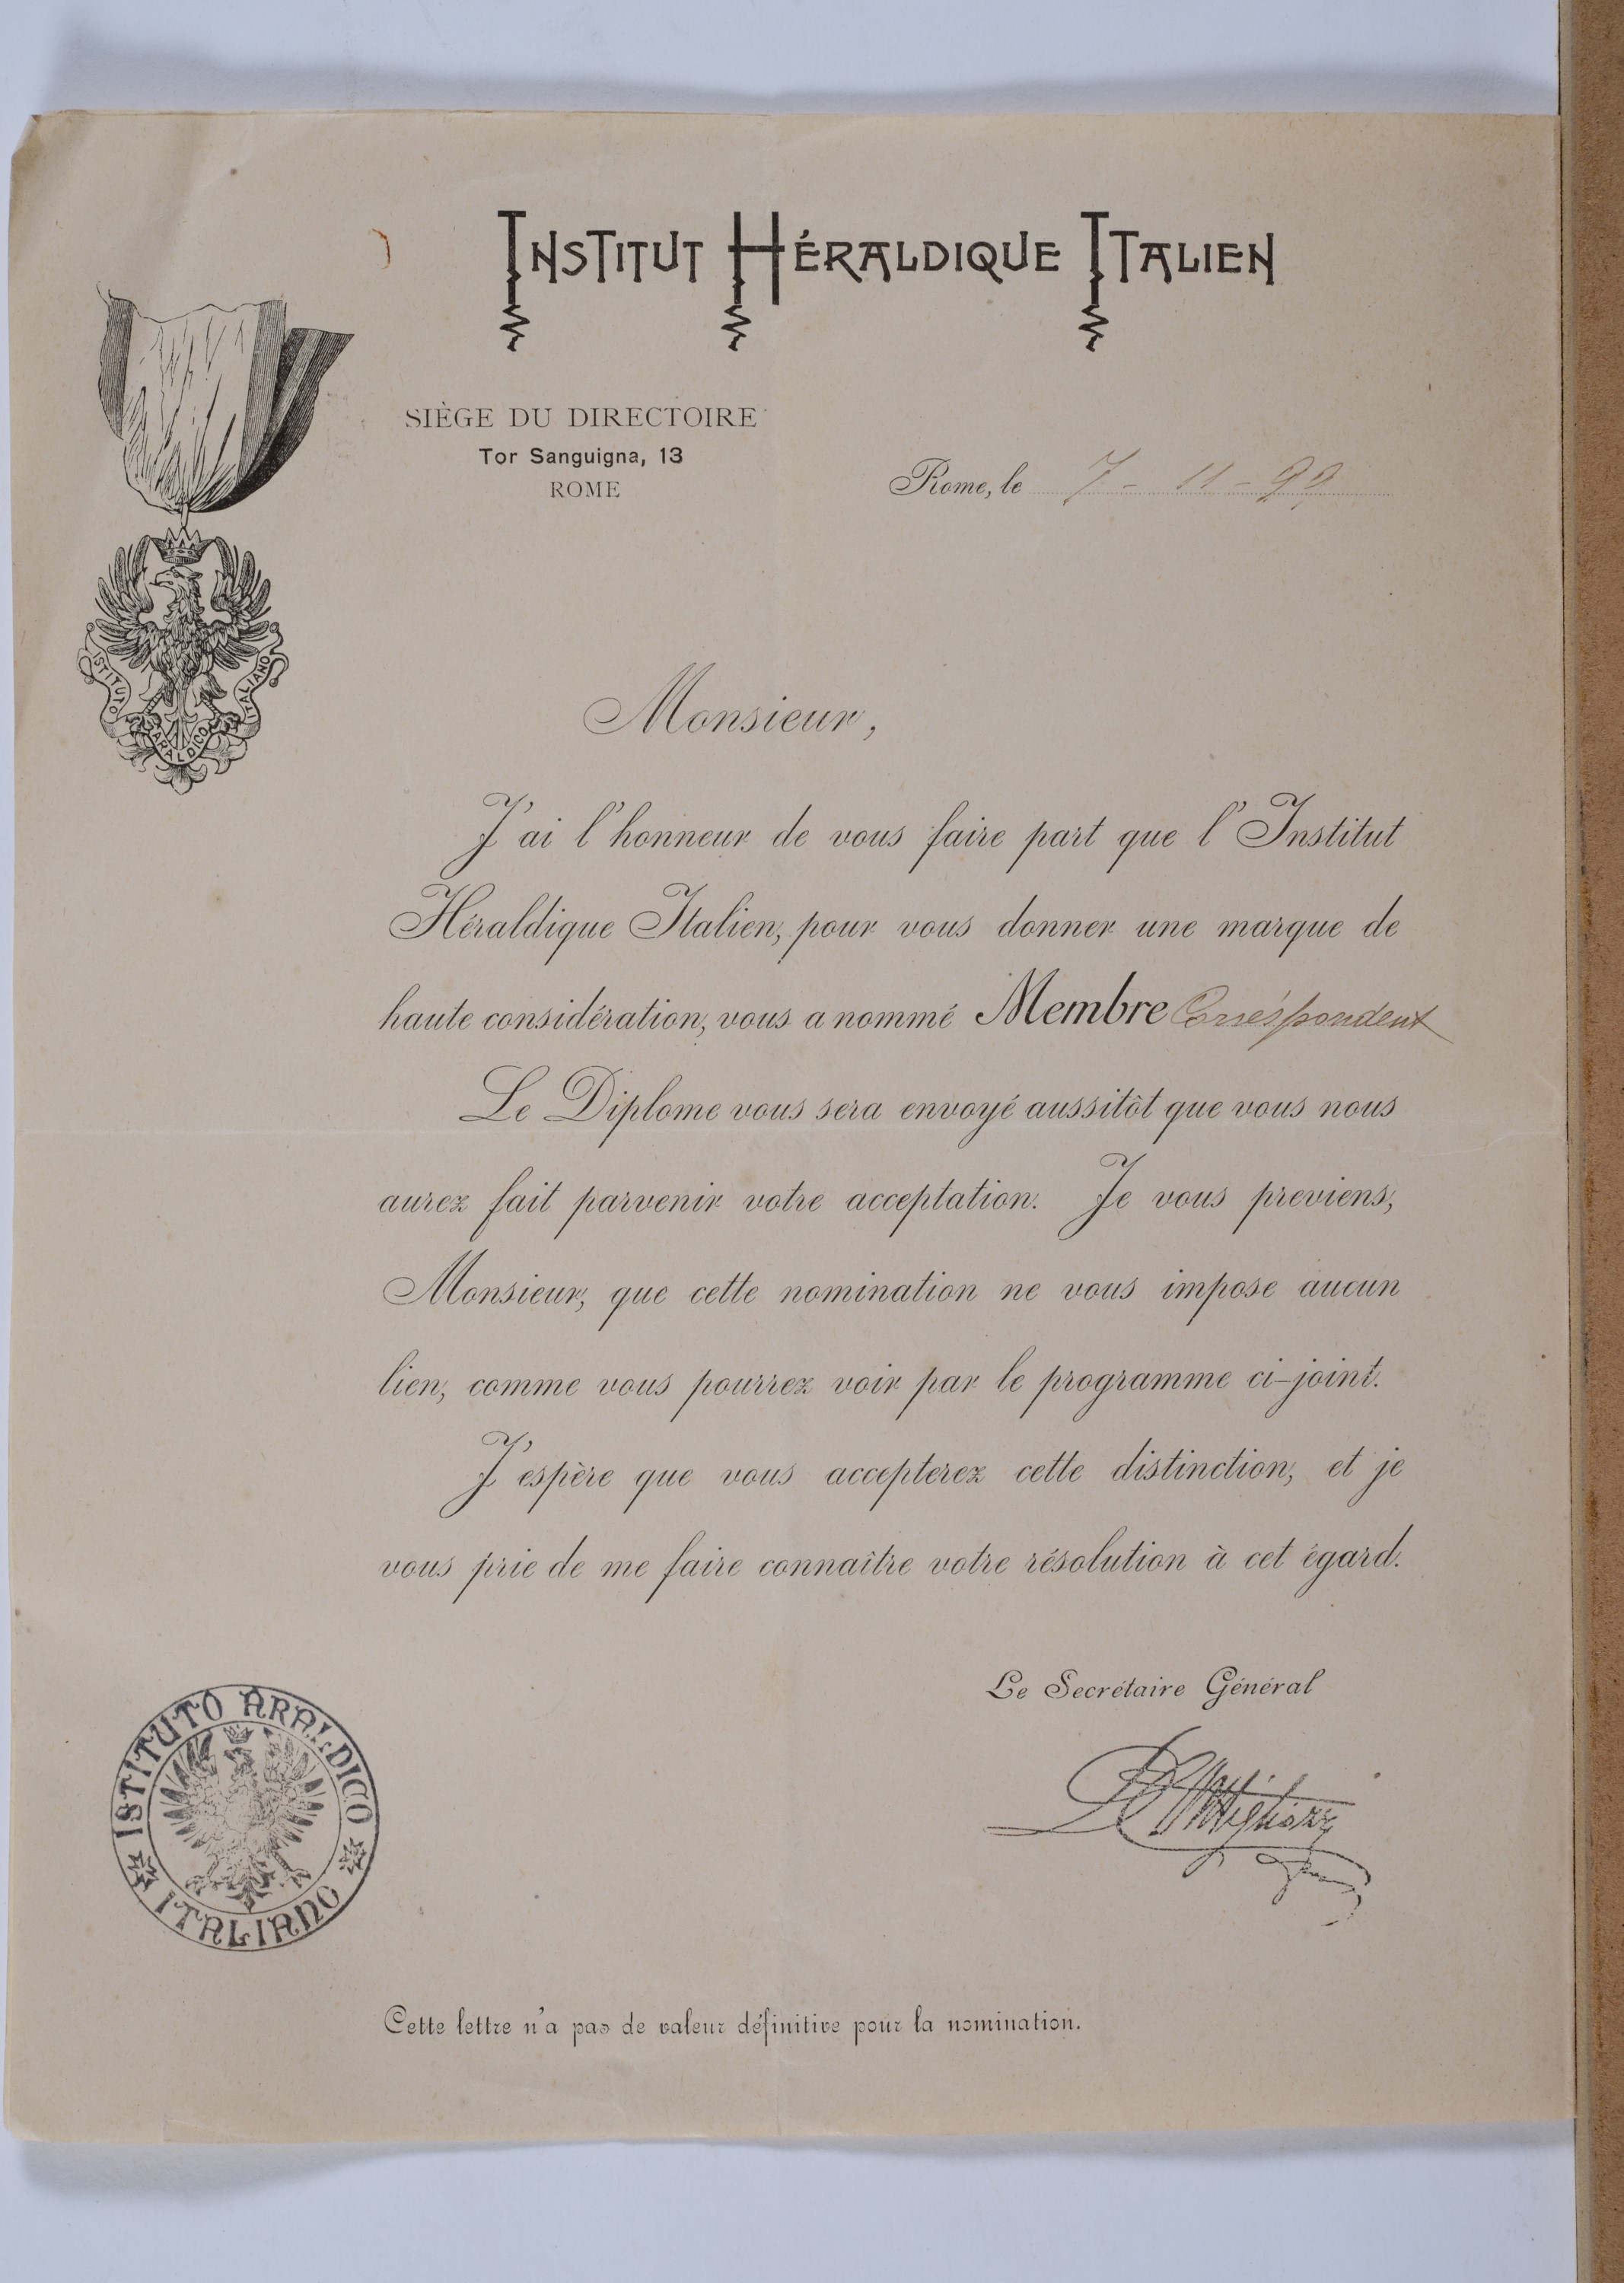 INSTITUT HÉRALDIQUE ITALIEN
SIÈGE DU DIRECTOIRE
Tor Sanguigna, 13
ROME
Rome, le 7 - 11 - 99
ISTITUTO ARALDICO ITALIANO
Monsieur,
J'ai l'honneur de vous faire part que l'Institut
Héraldique Italien, pour vous donner une marque de
haute considération, vous a nommé Membre Corréspondent
Le Diplome vous sera envoyé aussitôt que vous nous
aurez fait parvenir votre acceptation. Je vous previens,
Monsieur, que cette nomination ne vous impose aucun
lien, comme vous pourrez voir par le programme ci-joint.
J'espère que vous accepterez cette distinction, et je
vous prie de me faire connaître votre résolution à cet égard.
Le Secrétaire Général
ISTITUTO ARALDICO
ITALIANO
Cette lettre n'a pas de valeur définitive pour la nomination.